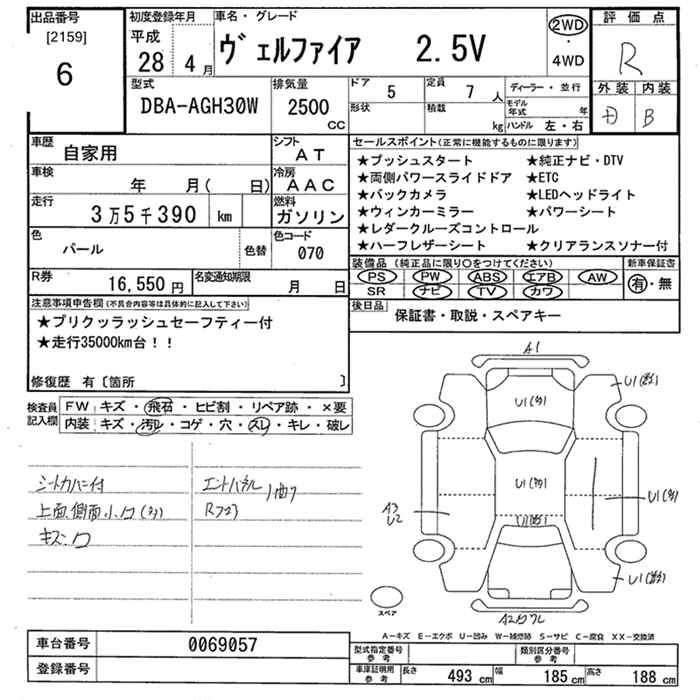 出品番号
[2159]
6
初度登録年月
平成
28 4月
車名・グレード
ヴェルファイア 2.5V
2WD
・
4WD
評価点
R
外装 内装
B
型式
DBA-AGH30W
排気量
2500
CC
ドア 5
定員 7人
形状
積載 kg
ディーラー・並行
モデル年式 年
ハンドル 左・右
車歴
自家用
シフト
AT
車検
年 月( 日)
冷房
AAC
走行
3万5千390 km
燃料
ガソリン
色
パール
色替
色コード
070
R券
16,550円
名変通知期限
月 日
セールスポイント(正常に機能するものに限ります)
★プッシュスタート ★純正ナビ・DTV
★両側パワースライドドア ★ETC
★バックカメラ ★LEDヘッドライト
★ウィンカーミラー ★パワーシート
★レダークルーズコントロール
★ハーフレザーシート ★クリアランスソナー付
装備品(純正品に限り○をつけてください)
新車保証書
PS PW ABS エアB AW
SR ナビ TV カワ
有・無
注意事項申告欄(不具合内容等は具体的に記入して下さい)
★プリクッラッシュセーフティー付
★走行35000km台!!
修復歴 有〔箇所 〕
後日品
保証書・取説・スペアキー
検査員記入欄
FW キズ・飛石・ヒビ割・リペア跡・×要
内装 キズ・汚レ・コゲ・穴・スレ・キレ・破レ
シートカバー付
上面、側面小
キズ
A1
U1
U1(多)
U1(多)
U1
U1(多)
A3
U2
U1
スペア
A-キズ E-エクボ U-凹み W-補修跡 S-サビ C-腐食 XX-交換済
車台番号
0069057
登録番号
型式指定番号
参考
類別区分番号
参考
車庫証明用
参考
長さ 493cm
幅 185cm
高さ 188cm